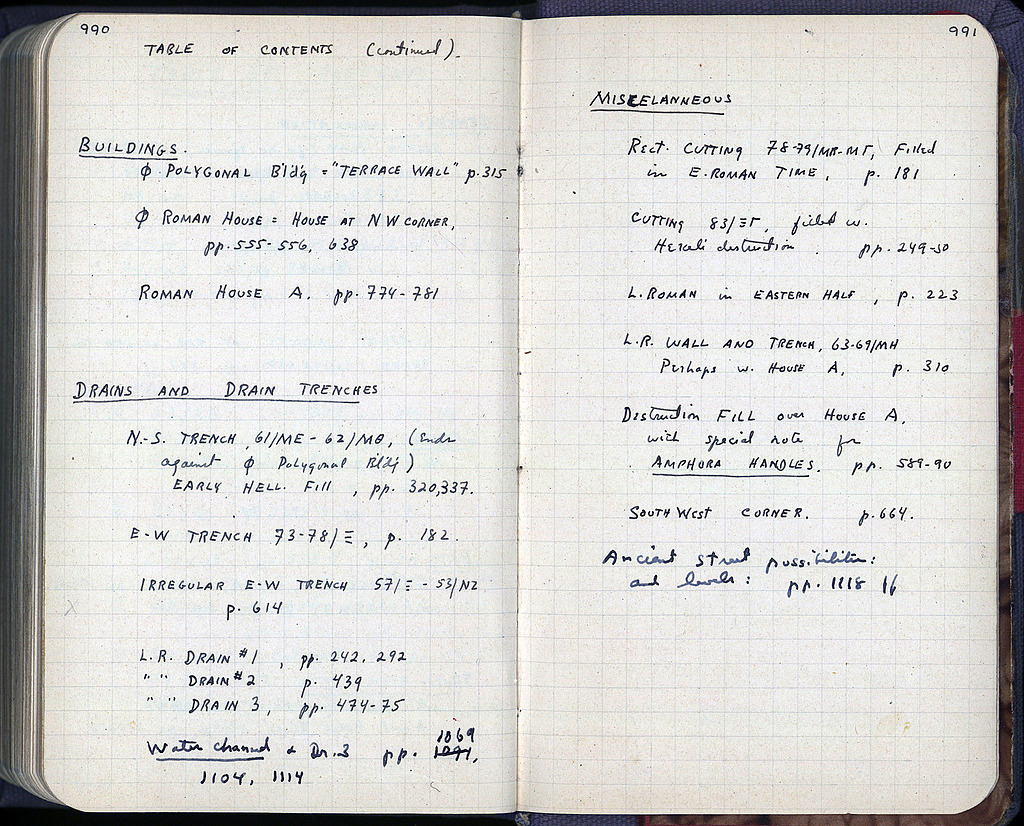 990
TABLE OF CONTENTS (continued).
BUILDINGS.
φ POLYGONAL Bldg = "TERRACE WALL" p.315
φ ROMAN HOUSE = HOUSE AT NW CORNER,
pp. 555-556, 638
ROMAN HOUSE A. pp. 774-781
DRAINS AND DRAIN TRENCHES
N.-S. TRENCH, 61/ME - 62/MΘ, (Ends
against φ Polygonal Bldg)
EARLY HELL. Fill, pp. 320,337.
E-W TRENCH 73-78/Ξ, p. 182.
IRREGULAR E-W TRENCH 57/Ξ - 53/NZ
p. 614
L.R. DRAIN #1, pp. 242, 292
" " DRAIN #2 p. 439
" " DRAIN 3, pp. 474-75
Water channel & Dr. 3 pp. 1069
1104, 1114
991
MISCELANNEOUS
Rect. CUTTING 78-79/MR-MΓ, Filled
in E. ROMAN TIME, p. 181
CUTTING 83/ΞΓ, filled w.
Heruli destruction. pp. 249-50
L. ROMAN in EASTERN HALF, p. 223
L.R. WALL AND TRENCH, 63-69/MH
Perhaps w. HOUSE A, p. 310
Destruction FILL over HOUSE A,
with special note for
AMPHORA HANDLES. pp. 589-90
SOUTH WEST CORNER. p. 664.
Ancient street possibilities:
and levels: pp. 1118 ff